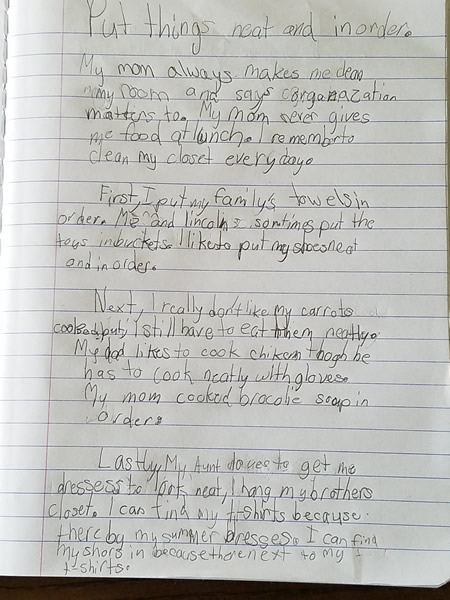 Put things neat and in order.
My mom always makes me clean
my room and says corganazation
matters to. My mom never gives
me food at lunch. I rememberto
clean my closet every day.
First, I put my family's towels in
order. Me and lincoln somtimes put the
toys in buckets. I like to put my shoes neat
and in order.
Next, I really don't like my carrots
cooked but, I still have to eat them neatly.
My dad likes to cook chiken though he
has to cook neatly with gloves.
My mom cooked brocolie soup in
order.
Lastly, My Aunt to get me
dressess to look neat, I hang my brothers
closet. I can find my t-shirts because
there by my summer dresses. I can find
my shors in because there next to my
t-shirts.